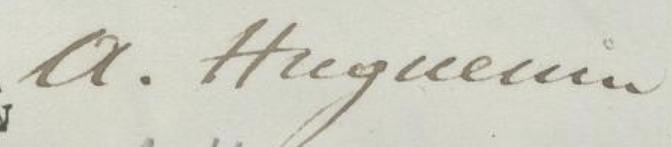 A. Huguenin